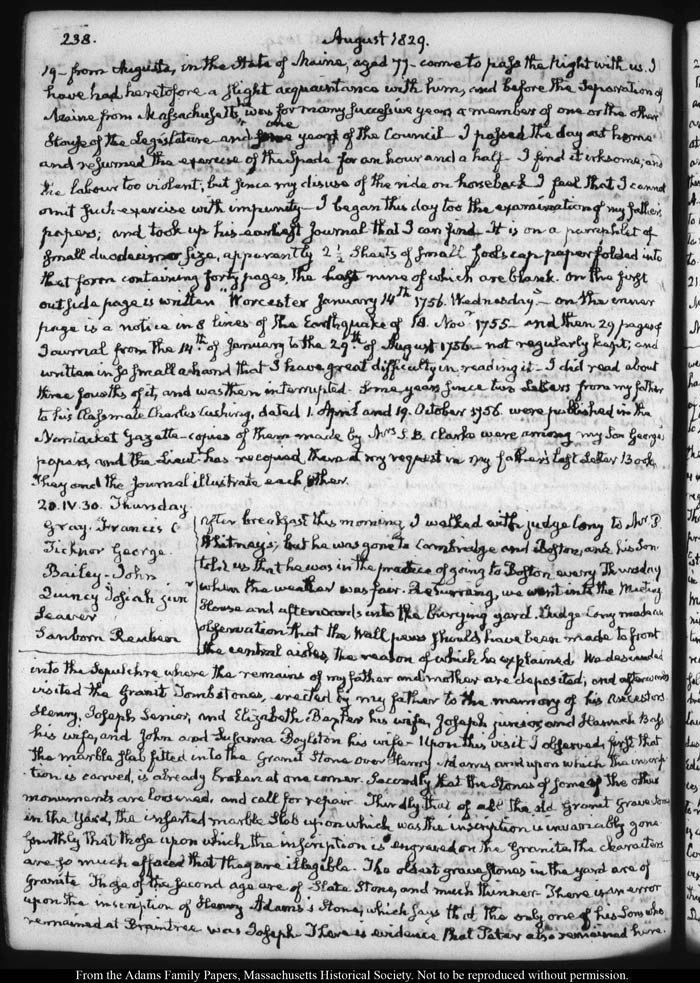 238.
August 1829.
19- from Augusta, in the State of Maine, aged 77- came to pass the Night with us. I
have had heretofore a slight acquaintance with him, and before the Separation of
Maine from Massachusetts, was for many successive years a member of one or the other
House of the Legislature and one years of the Council- I passed the day at home
and resumed the exercise of the Spade for an hour and a half- I find it irksome, and
the labour too violent; but since my disuse of the ride on horseback I feel that I cannot
omit such exercise with impunity- I began this day too the examination of my father's
papers; and took up his earliest Journal that I can find- It is on a pamphlet of
small duodecimo size, apparently 2 ½ Sheets of small foolscap paper folded into
that form containing forty pages, the last nine of which are blank. On the first
outside page is written "Worcester January 14th 1756. Wednesday"- on the inner
page is a notice in 8 lines of the Earthquake of 18. Novr 1755- and then 29 pages of
Journal from the 14th of January to the 29th of August 1756- not regularly kept; and
written in so small a hand that I have great difficulty in reading it- I did read about
three fourths of it, and was then interrupted. Some years since two Letters from my father
to his Classmate Charles Cushing, dated 1. April and 19. October 1756. were published in the
Nantucket Gazette- copies of them made by Mrs S. B. Clarke were among my Son George's
papers, and the Lieut has recopied them at my request in my father's last Letter Book
They and the Journal illustrate each other.
20. IV.30. Thursday
Gray. Francis C
Ticknor George
Bailey- John
Quincy Josiah junr
Seaver
Sanborn Reuben
After breakfast this morning, I walked with judge Cony to Mr P.
Whitney's; but he was gone to Cambridge and Boston, and his Son
told us that he was in the practice of going to Boston every Thursday
when the weather was fair. Returning, we went into the Meeting
House and afterwards into the burying yard. Judge Cony made an
observation that the Wall pews should have been made to front
the central aisles, the reason of which he explained. We descended
into the Sepulchre where the remains of my father and mother are deposited, and afterwards
visited the Granit Tombstones, erected by my father to the memory of his Ancestors
Henry, Joseph Senior, and Elizabeth Baxter his wife, Joseph junior and Hannah Bass
his wife, and John and Susanna Boylston his wife- Upon this visit I observed, first that
the marble slab fitted into the Granit Stone over Henry Adams, and upon which the inscrip-
tion is carved, is already broken at one corner. Secondly that the Stones of some of the other
monuments are loosened, and call for repair. Thirdly that of all the old Granit Grave Stones
in the Yard, the inserted marble Slab upon which was the inscription is invariably gone
fourthly That those upon which the inscription is engraved on the Granite, the characters
are so much effaced that they are illegible. The oldest gravestones in the yard are of
Granite Those of the second age are of Slate Stone, and much thinner- There is an error
upon the inscription of Henry Adams's Stone, which says that the only one of his Sons who
remained at Braintree was Joseph- There is evidence that Peter also remained here.
From the Adams Family Papers, Massachusetts Historical Society. Not to be reproduced without permission.